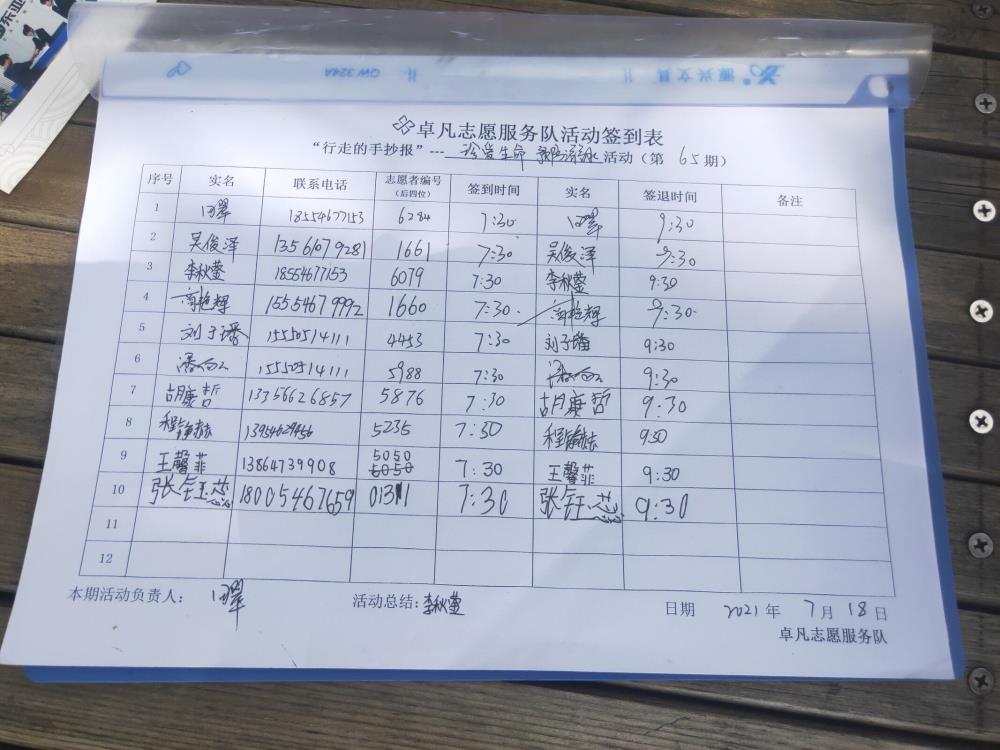 卓凡志愿服务队活动签到表
“行走的手抄报”---珍爱生命 预防溺水活动（第 65 期）
序号 实名 联系电话 志愿者编号（后四位） 签到时间 实名 签退时间 备注
1 18554677153 6284 7:30 9:30
2 吴俊泽 13561079281 1661 7:30 吴俊泽 9:30
3 李秋莹 18554677153 6079 7:30 李秋莹 9:30
4 15554679992 1660 7:30 9:30
5 刘子璠 15550514111 4453 7:30 刘子璠 9:30
6 15550514111 5988 7:30 9:30
7 胡康哲 13356626857 5876 7:30 胡康哲 9:30
8 5235 7:30 9:30
9 王馨菲 13864739908 5050 7:30 王馨菲 9:30
10 张钰蕊 18005467659 01311 7:30 张钰蕊 9:30
11
12
本期活动负责人： 活动总结：李秋莹 日期 2021 年 7 月 18 日
卓凡志愿服务队